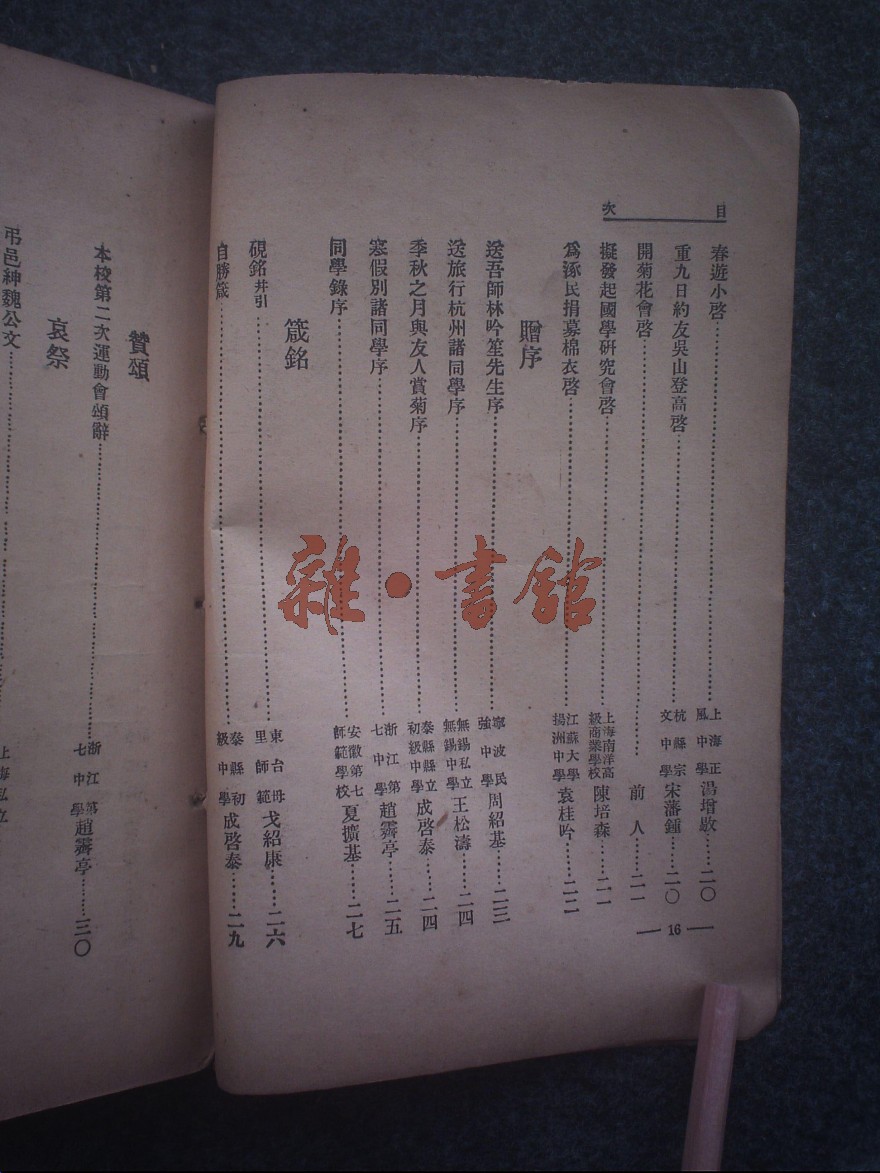 目次
春遊小啓……上海正風中學 湯增敭……二〇
重九日約友吳山登高啓……杭縣宗文中學 宋藩鍾……二〇
開菊花會啓……前人……二一
擬發起國學研究會啓……上海南洋高級商業學校 陳培森……二一
爲涿民捐募棉衣啓……江蘇大學揚洲中學 袁桂吟……二二
贈序
送吾師林吟笙先生序……寧波民強中學 周紹基……二三
送旅行杭州諸同學序……無錫私立無錫中學 王松濤……二四
季秋之月與友人賞菊序……泰縣縣立初級中學 成啓泰……二四
寒假別諸同學序……浙江第七中學 趙霽亭……二五
同學錄序……安徽第七師範學校 夏擴基……二七
箴銘
硯銘并引……東台母里師範 戈紹康……二六
自勝箴……泰縣初級中學 成啓泰……二九
16
贊頌
本校第二次運動會頌辭……浙江第七中學 趙霽亭……三〇
哀祭
弔邑紳魏公文……上海私立
雜·書館